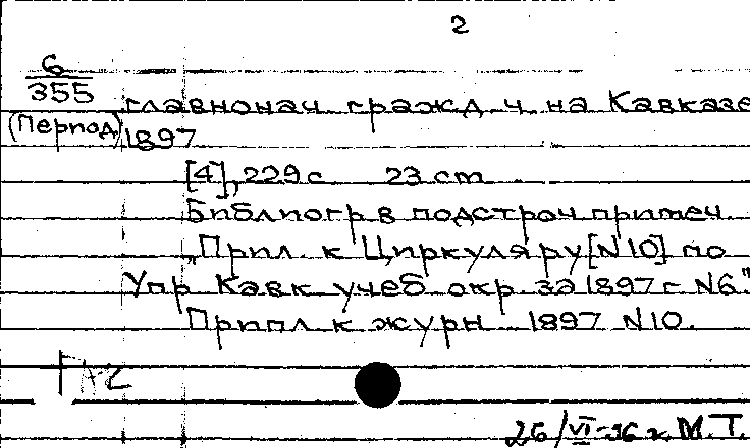 2
6
355
(Период)
главнонач гражд ч на Кавказе
1897
[4], 229 с 23 cm
Библиогр в подстроч примеч.
„Прил. к Циркуляру [N 10] по
Упр Кавк учеб окр. за 1897 г N6."
Прил к журн 1897 N10.
26/VI-36 г. М.Т.